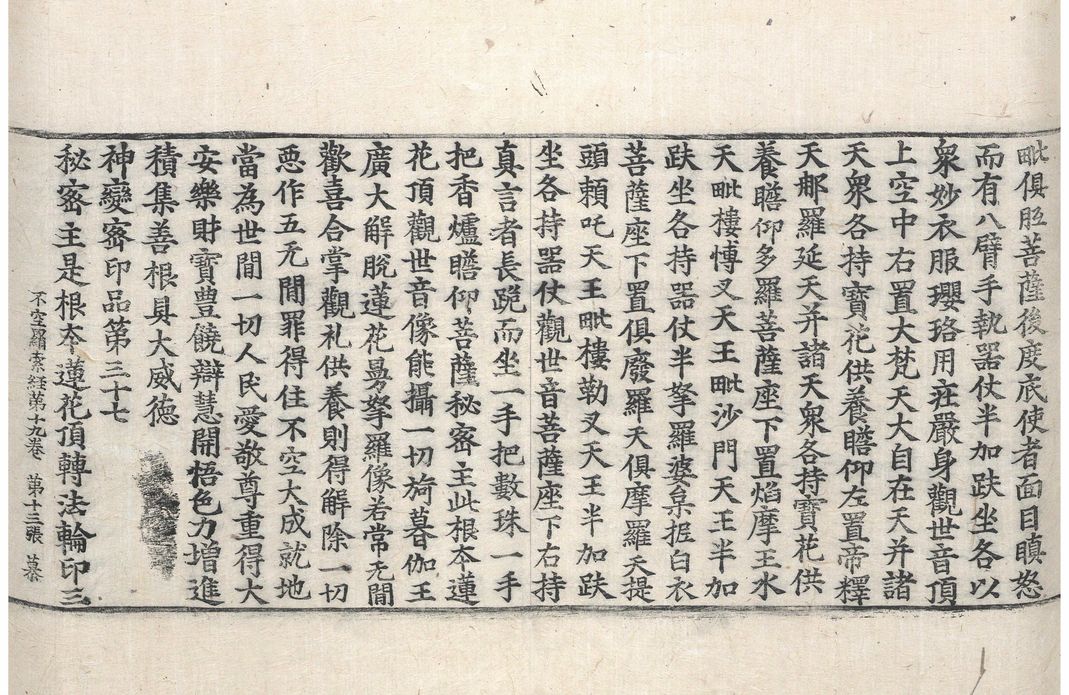 毗俱胝菩薩後度底使者面目瞋怒
而有八臂手執器仗半加趺坐各以
衆妙衣服瓔珞用莊嚴身觀世音頂
上空中右置大梵天大自在天并諸
天衆各持寶花供養瞻仰左置帝釋
天那羅延天并諸天衆各持寶花供
養瞻仰多羅菩薩座下置焰摩王水
天毗樓愽叉天王毗沙門天王半加
趺坐各持器仗半拏羅婆枲抳白衣
菩薩座下置俱廢羅天俱摩羅天提
頭賴吒天王毗樓勒叉天王半加趺
坐各持器仗觀世音菩薩座下右持
真言者長跪而坐一手把數珠一手
把香爐瞻仰菩薩秘密主此根本蓮
花頂觀世音像能攝一切旖暮伽王
廣大解脫蓮花曼拏羅像若常无間
歡喜合掌觀礼供養則得解除一切
惡作五无間罪得住不空大成就地
當為世間一切人民愛敬尊重得大
安樂財寶豊饒辯慧開悟色力增進
積集善根具大威德
神變密印品第三十七
秘密主是根本蓮花頂轉法輪印三
不空羂索經第十九卷 第十三張 慕